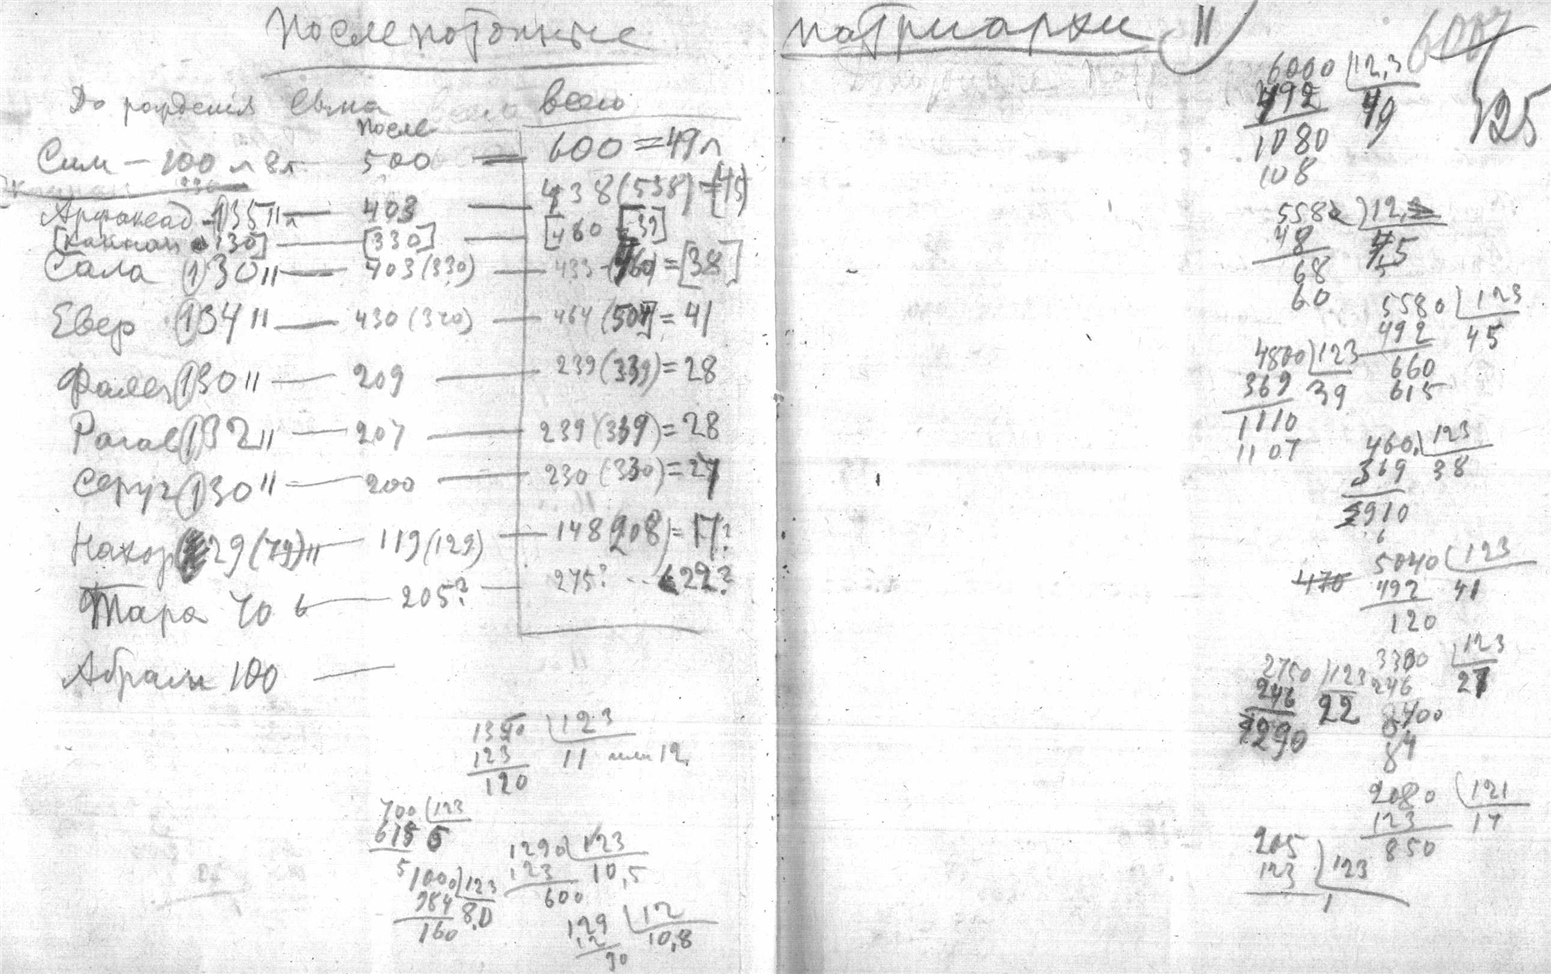 Послепотопные патриархи II
До рождения сына после всего
Сим – 100 л 8 л 500 — 600 = 49 л
Арфаксад – 135 11 л — 403 438 (538) = [45]
[Каинан 130] — [330] — [460 39]
Сала 130 11 — 403 (330) — 433 (460) = [38]
Евер 134 11 — 430 (370) — 464 (504) = 41
Фалек 130 11 — 209 — 239 (339) = 28
Рагав 132 11 — 207 — 239 (339) = 28
Серуг 130 11 — 200 — 230 (330) = 27
Нахор 29 (79) 11 — 119 (129) — 148 208) = 17?
Тара 70 6 — 205? — 275? 22?
Абрам 100 —
1350 123
123 11 или 12
120
700 123
615 5
1000 123
984 8,0
160
1290 123
123 10,5
600
129 12
12 10,8
90
6000 12,3
492 49
1080
108
125
558 12
48 45
68
60
5580 123
492 45
660
615
4800 123
369 39
1110
1107
460 123
369 38
910
5040 123
470 492 41
120
3300 123
246 27
8400
84
2750 123
246 22
290
2080 121
123 17
850
205 123
123 1